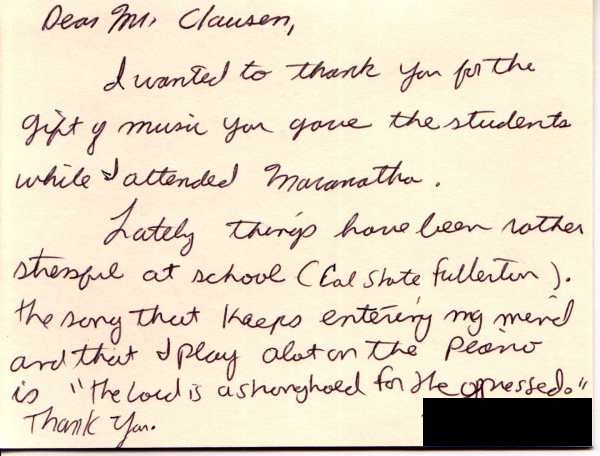 Dear Mr. Clausen,
I wanted to thank you for the
gift of music you gave the students
while I attended Maranatha.
Lately things have been rather
stressful at school (Cal State Fullerton).
The song that keeps entering my mind
and that I play alot on the piano
is "The Lord is a stronghold for the oppressed."
Thank You.